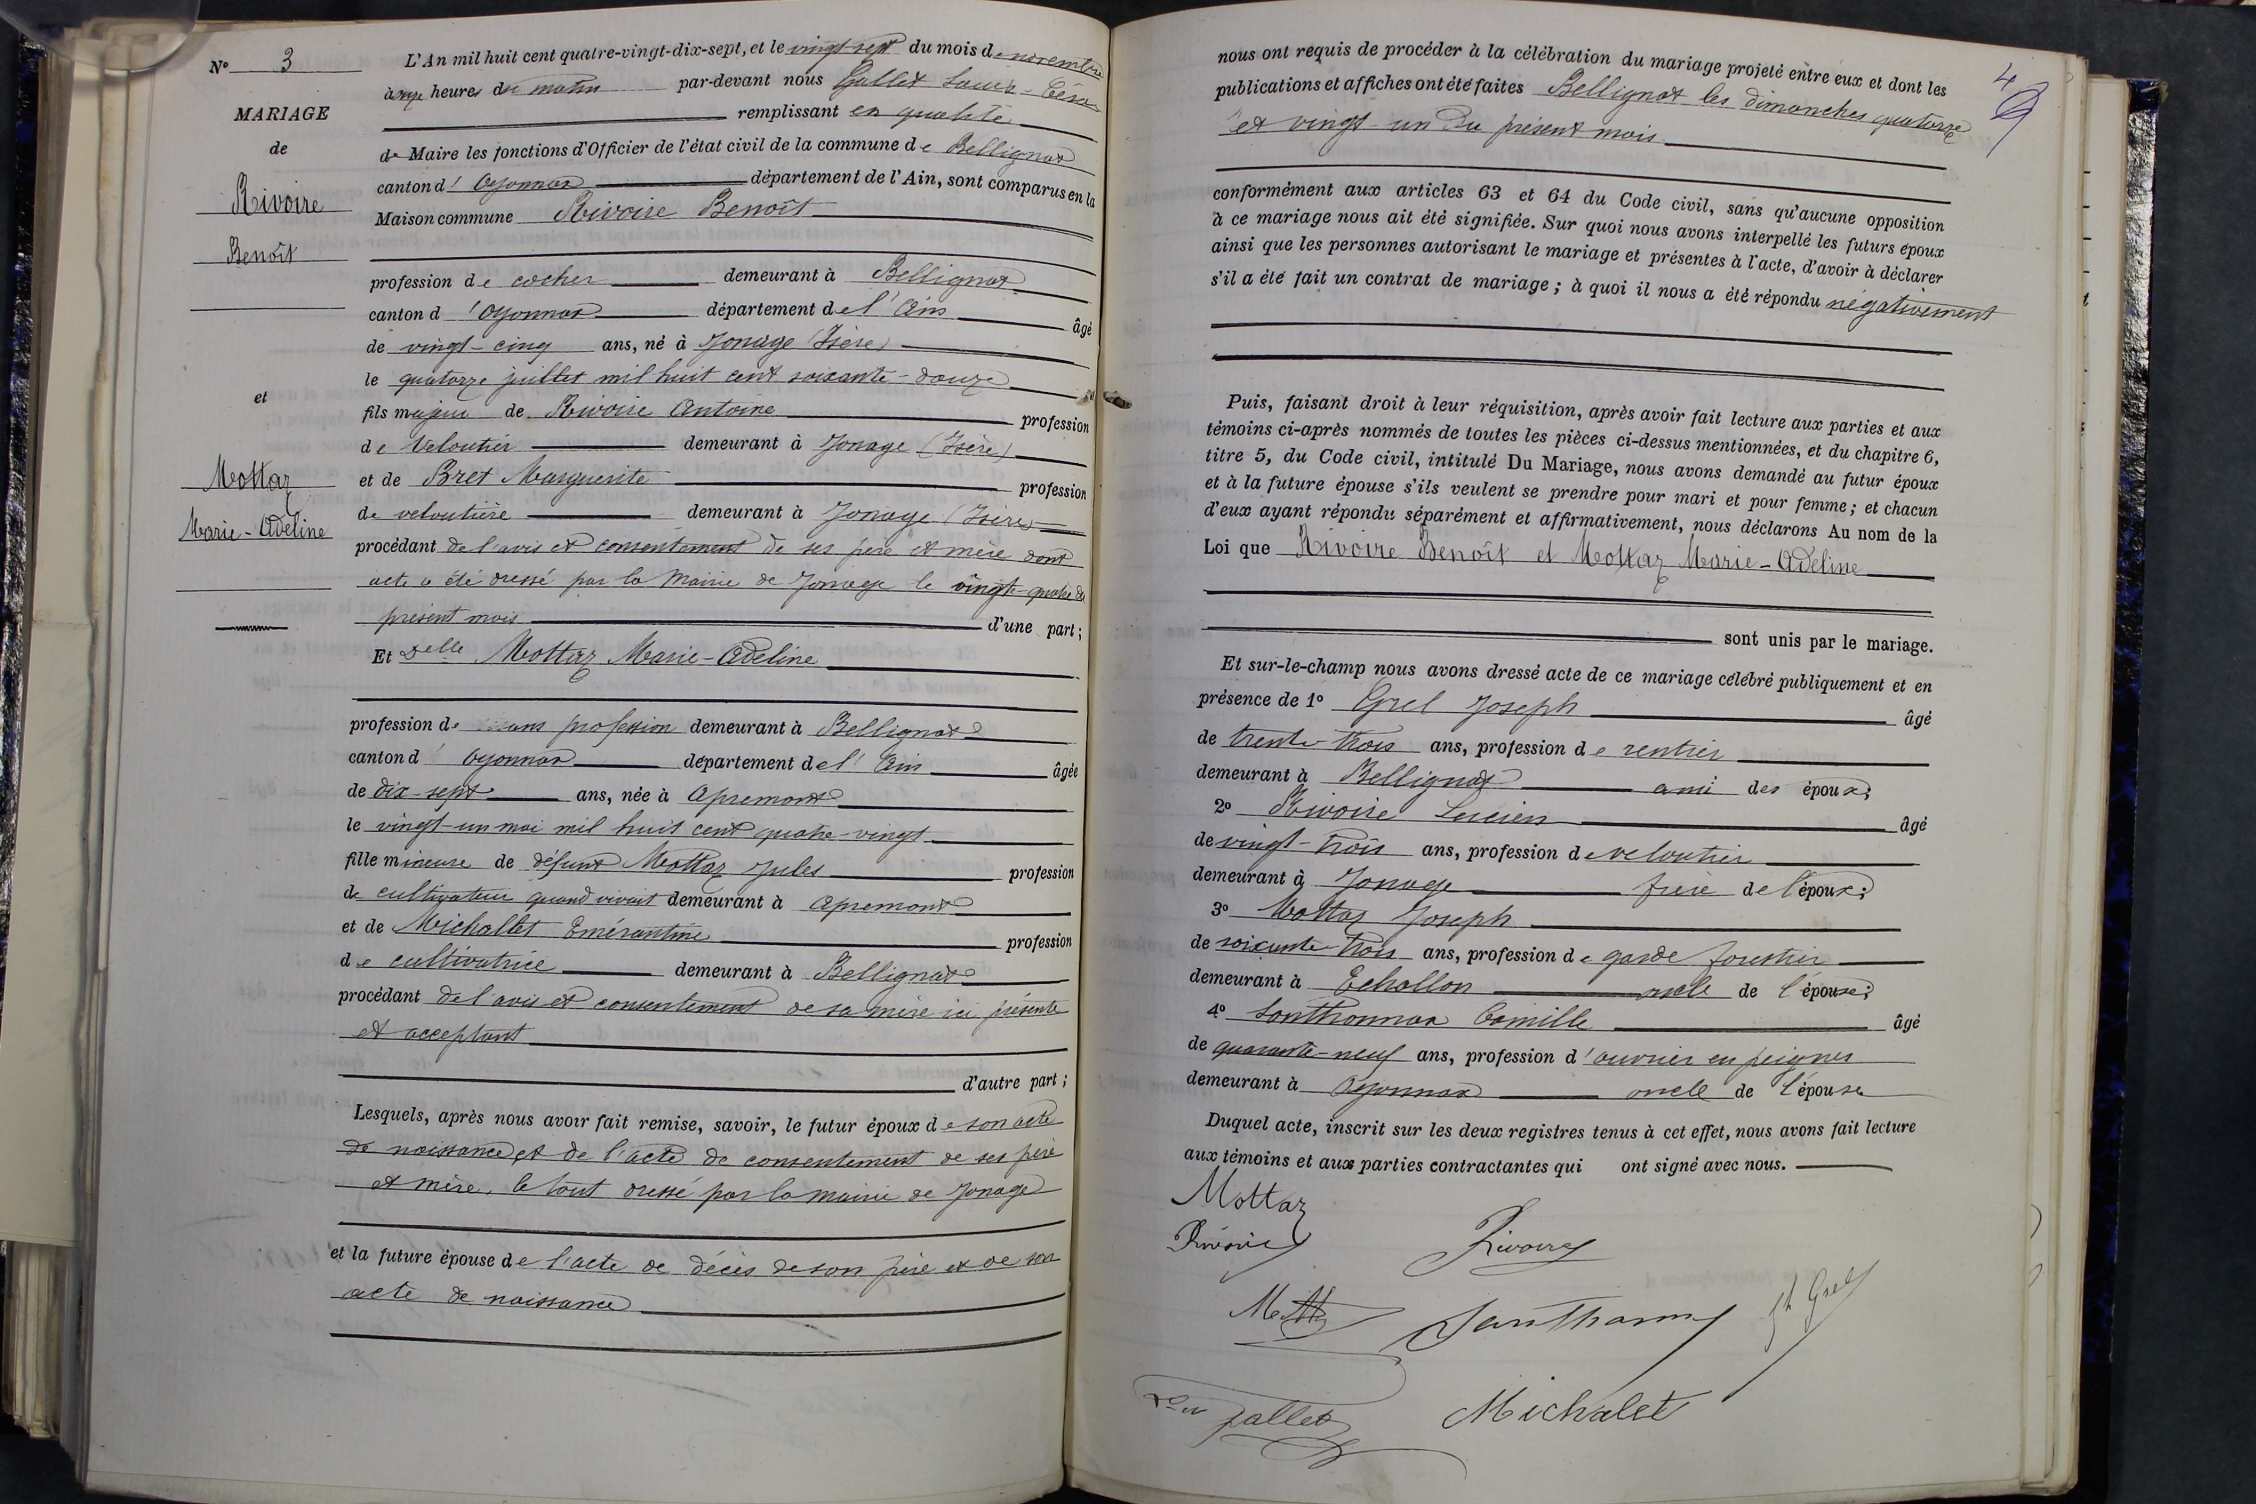 N° 3
MARIAGE
de
Rivoire
Benoît
et
Mottaz
Marie-Adeline
L'An mil huit cent quatre-vingt-dix-sept, et le vingt sept du mois de novembre
à onze heures du matin par-devant nous Gallet Louis-César
remplissant en qualité
de Maire les fonctions d'Officier de l'état civil de la commune de Bellignat
canton d'Oyonnax département de l'Ain, sont comparus en la
Maison commune Rivoire Benoît
profession de cocher demeurant à Bellignat
canton d'Oyonnax département de l'Ain âgé
de vingt-cinq ans, né à Jonage (Isère)
le quatorze juillet mil huit cent soixante-douze
fils majeur de Rivoire Antoine profession
de veloutier demeurant à Jonage (Isère)
et de Bret Marguerite profession
de veloutière demeurant à Jonage (Isère)
procédant de l'avis et consentement de ses père et mère dont
acte a été dressé par la Mairie de Jonage le vingt-quatre du
présent mois d'une part;
Et Delle Mottaz Marie-Adeline
profession de sans profession demeurant à Bellignat
canton d'Oyonnax département de l'Ain âgée
de dix-sept ans, née à Apremont
le vingt-un mai mil huit cent quatre-vingt
fille mineure de défunt Mottaz Jules profession
de cultivateur quand vivait demeurant à Apremont
et de Michallet Emérantine profession
de cultivatrice demeurant à Bellignat
procédant de l'avis et consentement de sa mère ici présente
et acceptant
d'autre part;
Lesquels, après nous avoir fait remise, savoir, le futur époux de son acte
de naissance et de l'acte de consentement de ses père
et mère, le tout dressé par la mairie de Jonage
et la future épouse de l'acte de décès de son père et de son
acte de naissance
4
nous ont requis de procéder à la célébration du mariage projeté entre eux et dont les
publications et affiches ont été faites Bellignat les dimanches quatorze
et vingt-un du présent mois
conformément aux articles 63 et 64 du Code civil, sans qu'aucune opposition
à ce mariage nous ait été signifiée. Sur quoi nous avons interpellé les futurs époux
ainsi que les personnes autorisant le mariage et présentes à l'acte, d'avoir à déclarer
s'il a été fait un contrat de mariage; à quoi il nous a été répondu négativement
Puis, faisant droit à leur réquisition, après avoir fait lecture aux parties et aux
témoins ci-après nommés de toutes les pièces ci-dessus mentionnées, et du chapitre 6,
titre 5, du Code civil, intitulé Du Mariage, nous avons demandé au futur époux
et à la future épouse s'ils veulent se prendre pour mari et pour femme; et chacun
d'eux ayant répondu séparément et affirmativement, nous déclarons Au nom de la
Loi que Rivoire Benoît et Mottaz Marie-Adeline
sont unis par le mariage.
Et sur-le-champ nous avons dressé acte de ce mariage célébré publiquement et en
présence de 1° Grel Joseph âgé
de trente-trois ans, profession de rentier
demeurant à Bellignat ami des époux;
2° Rivoire Lucien âgé
de vingt-trois ans, profession de veloutier
demeurant à Jonage frère de l'époux;
3° Mottaz Joseph
de soixante-trois ans, profession de garde forestier
demeurant à Echallon oncle de l'épouse;
4° Sonthonnax Camille âgé
de quarante-neuf ans, profession d'ouvrier en peignes
demeurant à Oyonnax oncle de l'épouse
Duquel acte, inscrit sur les deux registres tenus à cet effet, nous avons fait lecture
aux témoins et aux parties contractantes qui ont signé avec nous.
Mottaz
Rivoire Rivoire
Jh Grel
Gallet Michalet